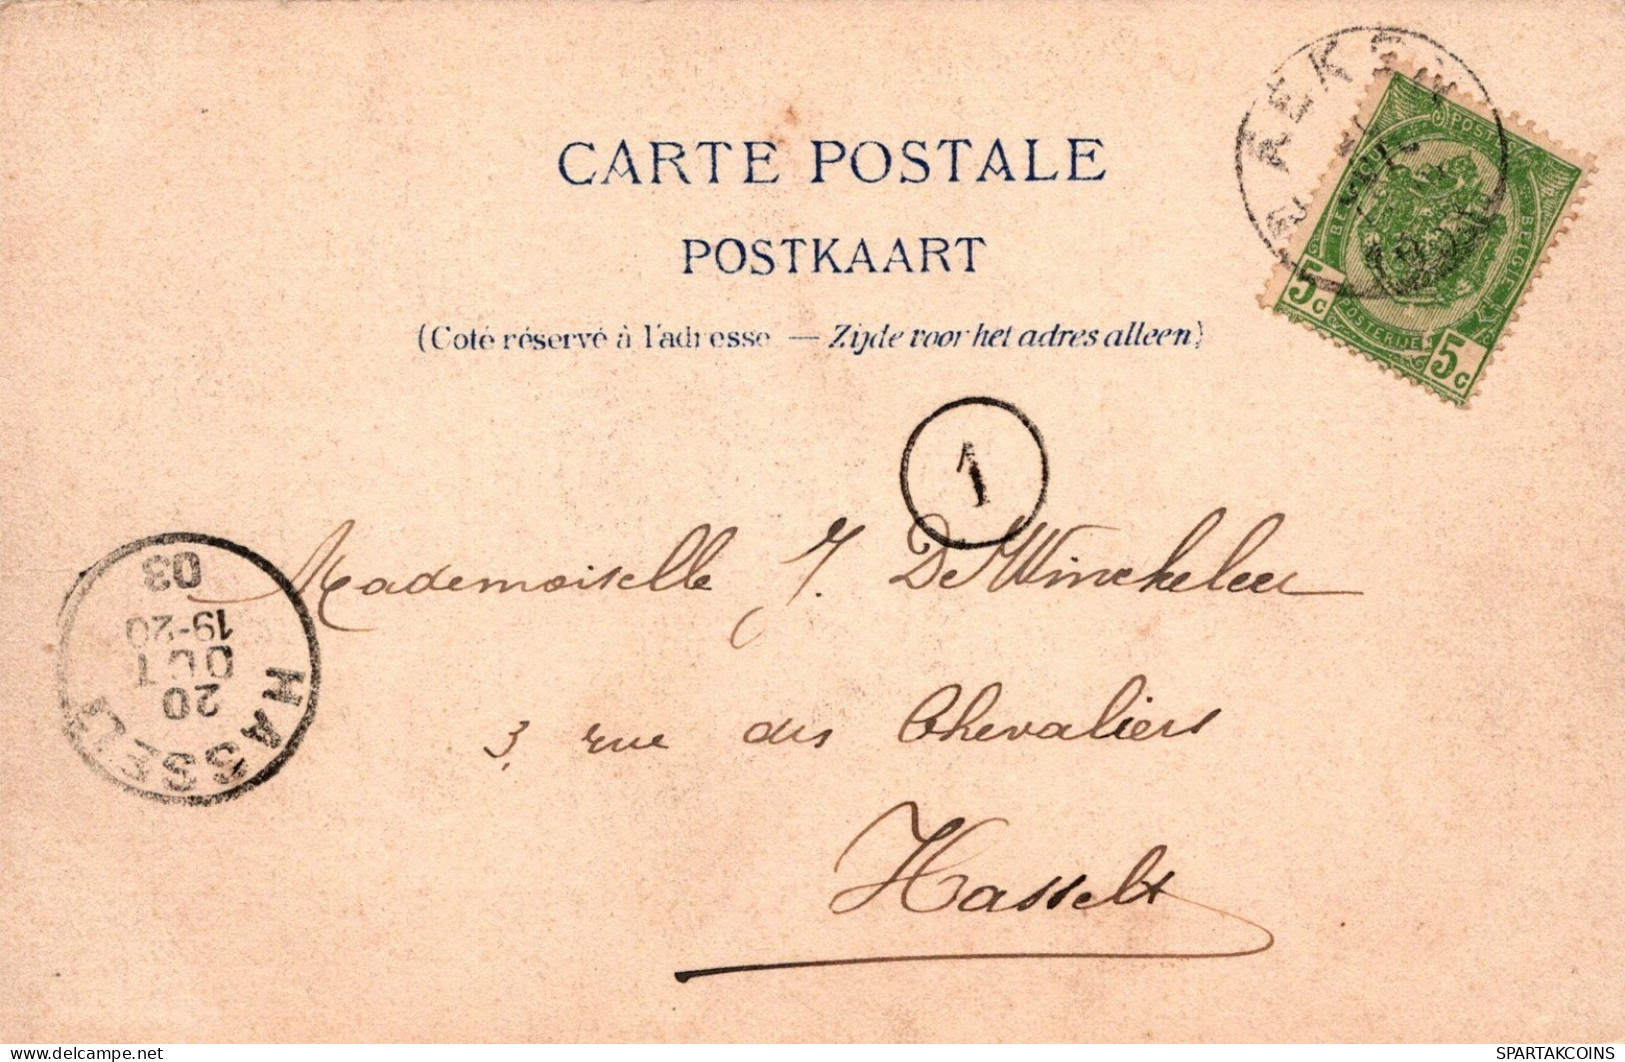 CARTE POSTALE
POSTKAART
(Coté réservé à l'adresse — Zijde voor het adres alleen)
5c
5c
POSTERIJEN
1
Mademoiselle J. De Winckeleer
3, rue des Chevaliers
Hasselt
HASSELT
20
OCT
19-20
03
delcampe.net
SPARTAKCOINS